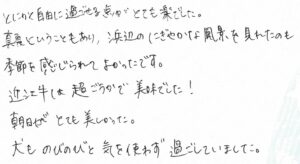 とにかく自由に過ごせる点がとても楽でした。
真夏ということもあり、浜辺のにぎやかな風景を見れたのも
季節を感じられてよかったです。
近江牛は超ごうかで美味でした!
朝日がとても美しかった。
犬ものびのびと気を使わず過ごしていました。